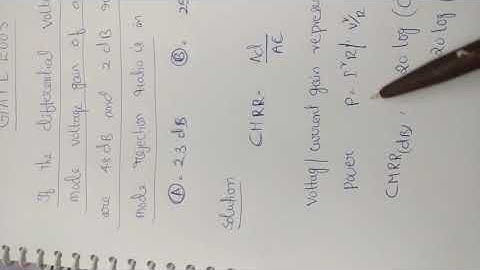 GATE 2003
If the differential volta
mode voltage gain of a
are 48 dB and 2 dB
mode rejection ratio is
Ⓐ 23 dB Ⓑ 25
Solution
CMRR = Ad
Ac
Voltag/ current gain repres
Power P = I²R / V²/R
CMRR(dB) = 20 log (
20 log (